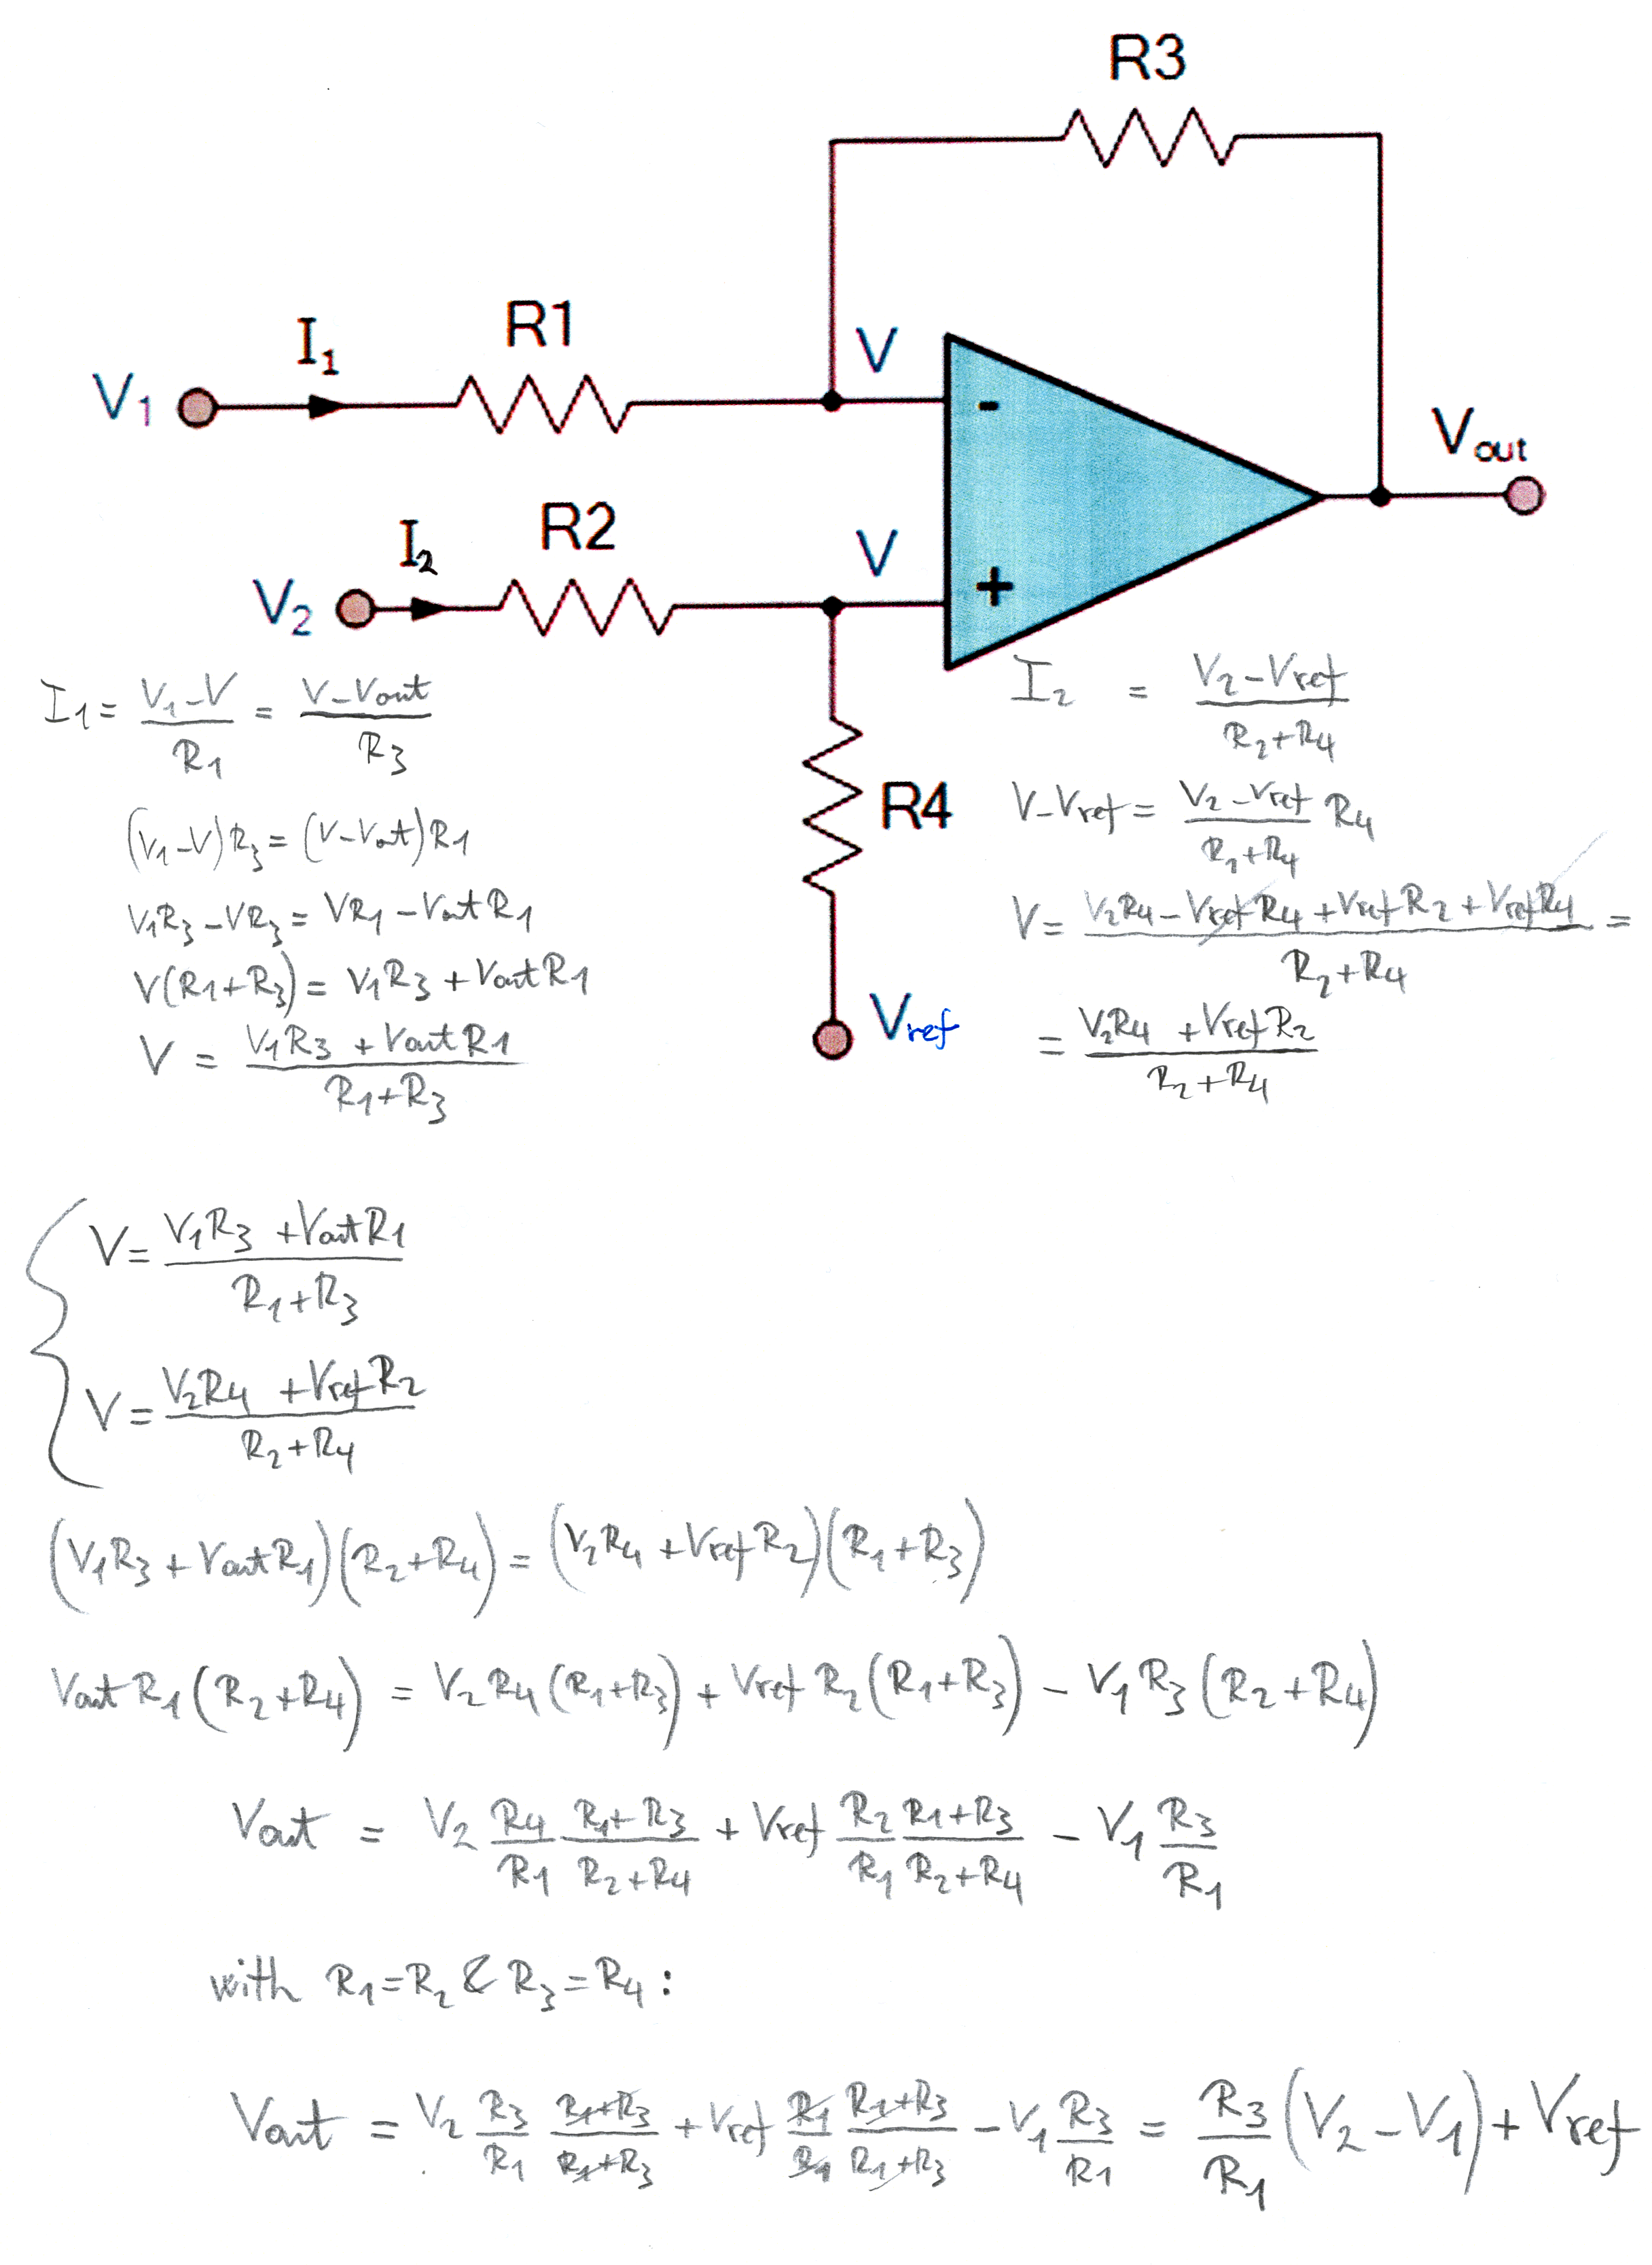 R3
R1
I₁
V
V₁
-
V_out
R2
I₂
V
V₂
+
R4
V_ref
I₁ = (V₁-V)/R₁ = (V-Vout)/R₃
(V₁-V)R₃ = (V-Vout)R₁
V₁R₃ - VR₃ = VR₁ - VoutR₁
V(R₁+R₃) = V₁R₃ + VoutR₁
V = (V₁R₃ + VoutR₁)/(R₁+R₃)
I₂ = (V₂-Vref)/(R₂+R₄)
V-Vref = (V₂-Vref)/(R₂+R₄) R₄
V = (V₂R₄ - VrefR₄ + VrefR₂ + VrefR₄)/(R₂+R₄) =
= (V₂R₄ + VrefR₂)/(R₂+R₄)
V = (V₁R₃ + VoutR₁)/(R₁+R₃)
V = (V₂R₄ + VrefR₂)/(R₂+R₄)
(V₁R₃ + VoutR₁)(R₂+R₄) = (V₂R₄ + VrefR₂)(R₁+R₃)
VoutR₁(R₂+R₄) = V₂R₄(R₁+R₃) + VrefR₂(R₁+R₃) - V₁R₃(R₂+R₄)
Vout = V₂ R₄/R₁ (R₁+R₃)/(R₂+R₄) + Vref R₂/R₁ (R₁+R₃)/(R₂+R₄) - V₁ R₃/R₁
with R₁=R₂ & R₃=R₄:
Vout = V₂ R₃/R₁ (R₁+R₃)/(R₁+R₃) + Vref R₁/R₁ (R₁+R₃)/(R₁+R₃) - V₁ R₃/R₁ = R₃/R₁ (V₂-V₁) + Vref